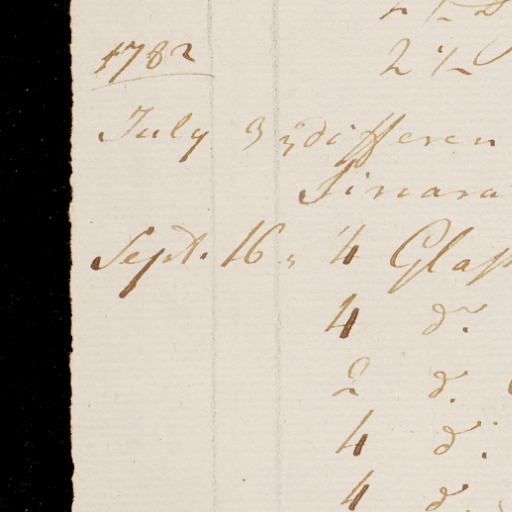 1782
2
July 3 differen
Sept. 16 4 Glaſs
4 dº.
2 dº.
4 dº.
4 dº.